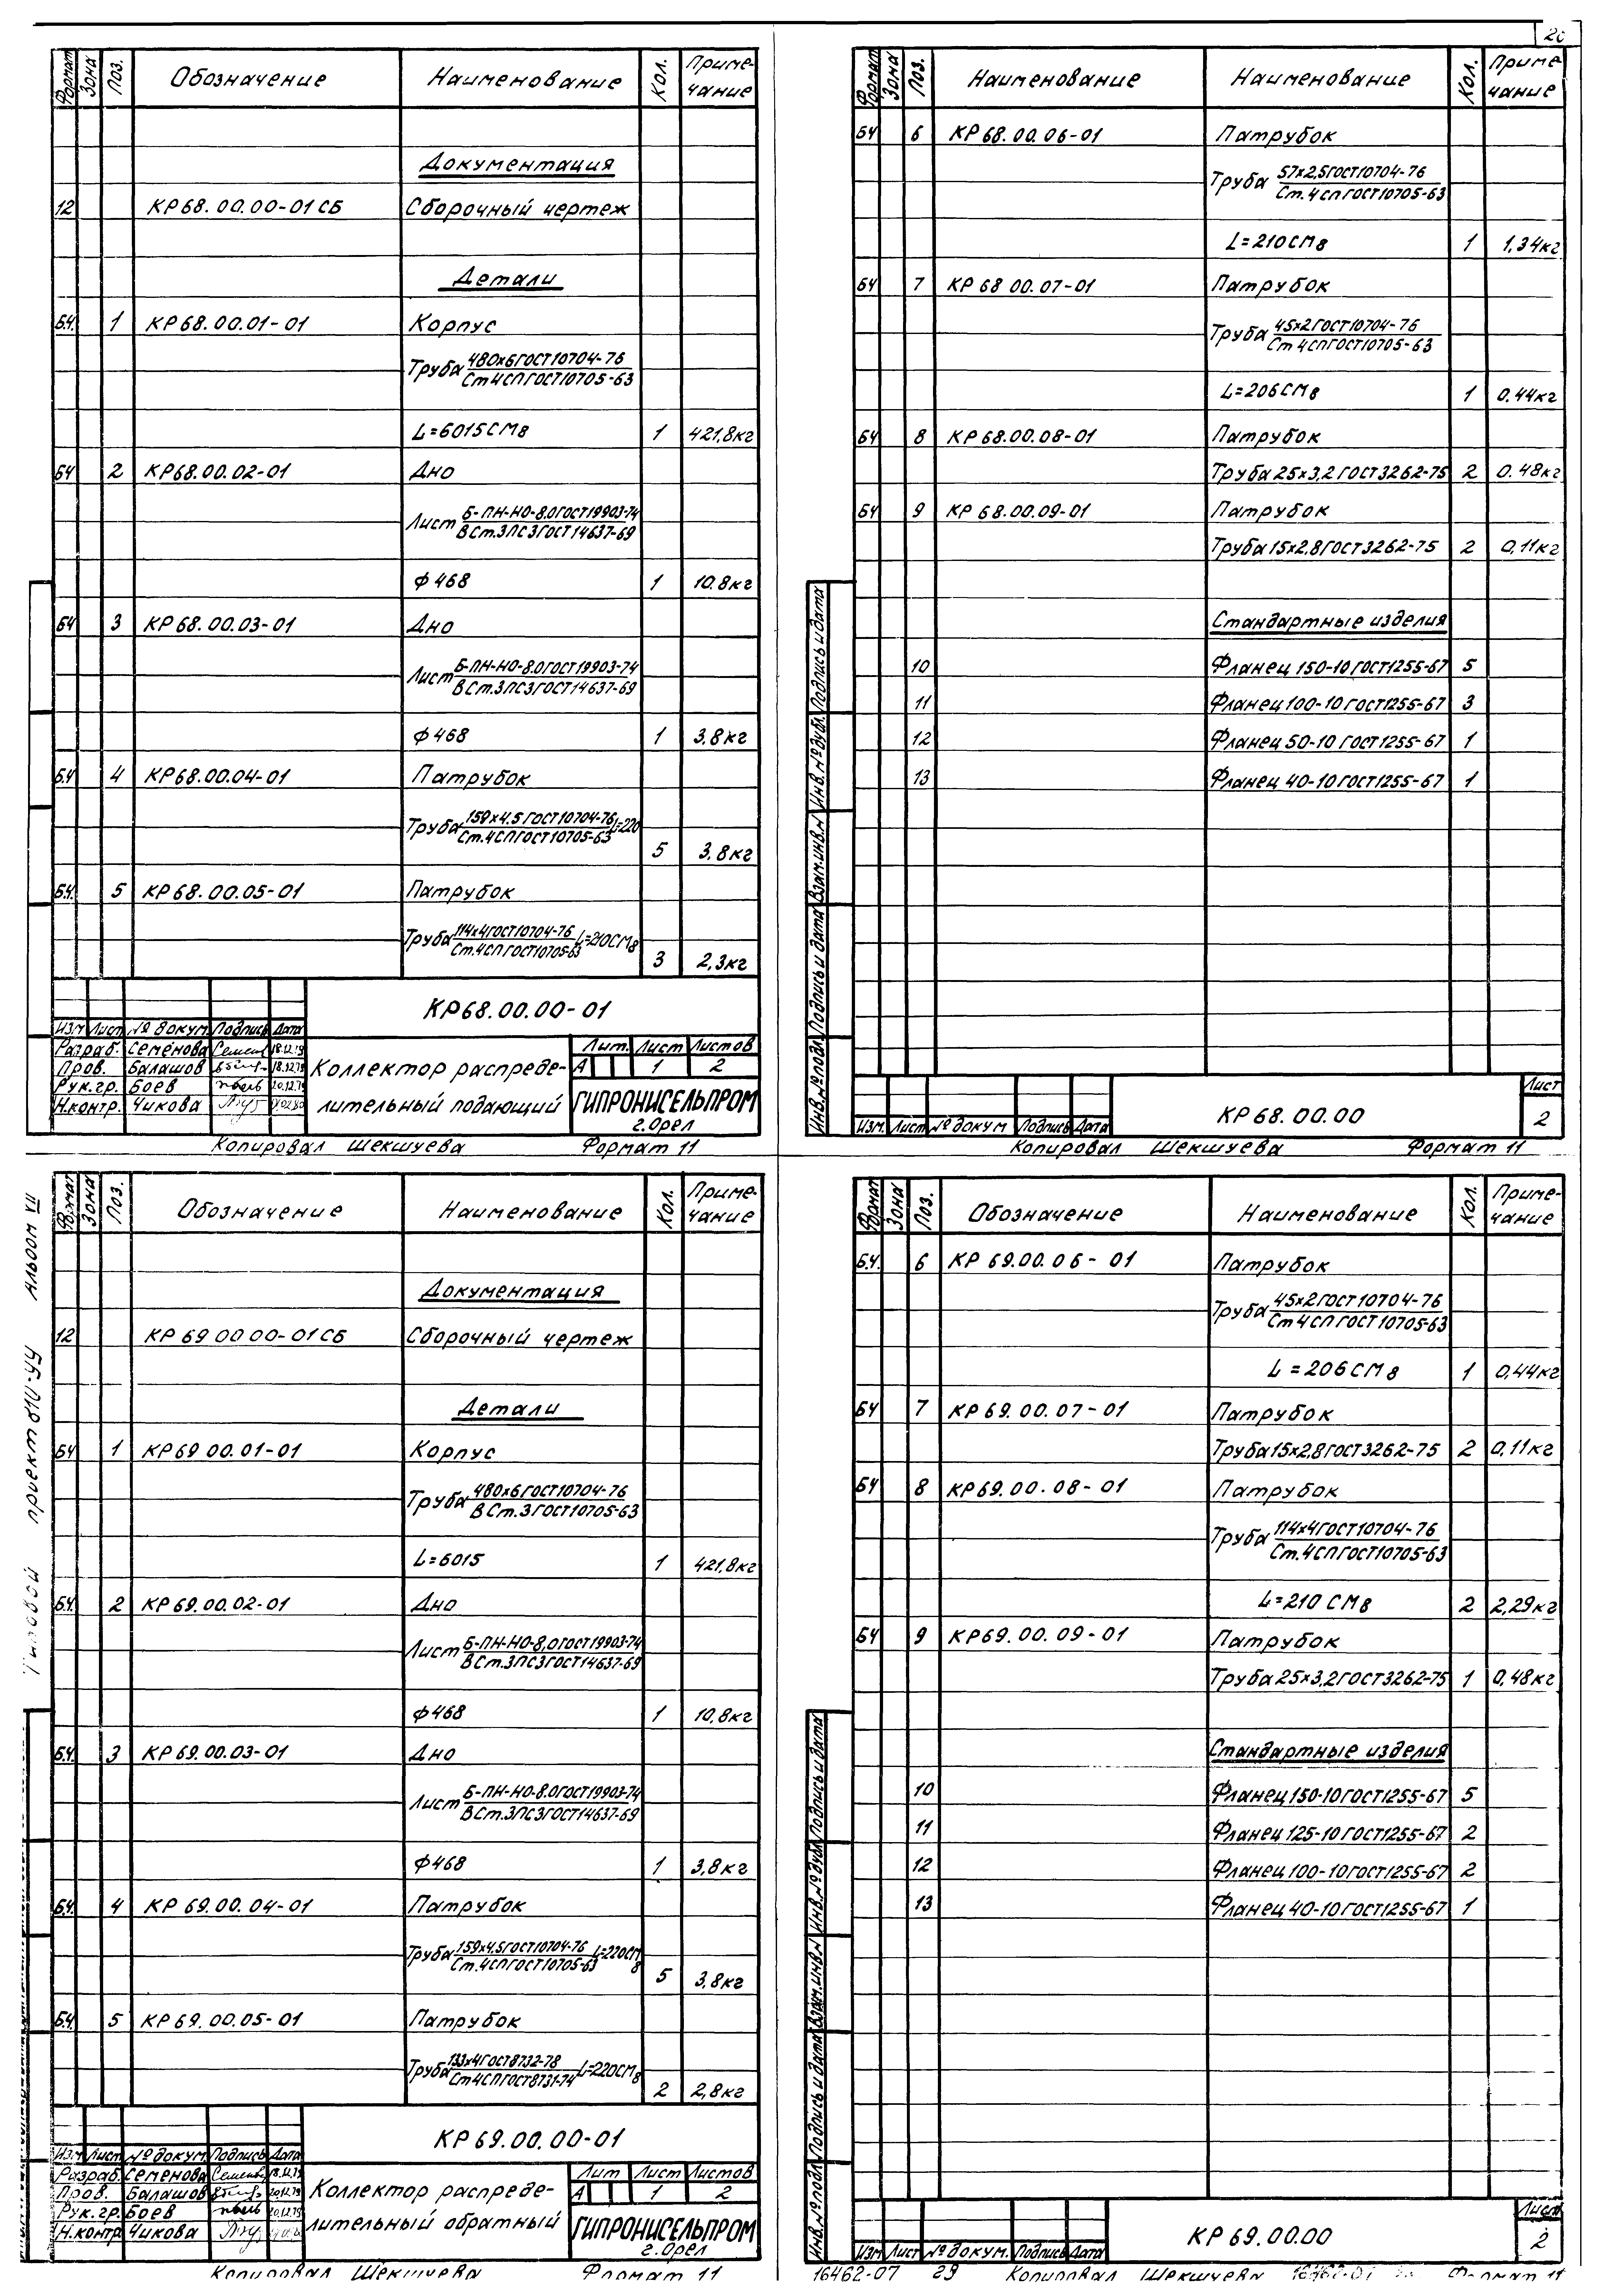 Формат Зона Поз. Обозначение Наименование Кол. Приме-чание
Документация
12 КР68.00.00-01СБ Сборочный чертеж
Детали
Б.Ч. 1 КР68.00.01-01 Корпус
Труба 480х6ГОСТ10704-76
Ст4СПГОСТ10705-63
L=6015СМ8 1 421,8кг
БЧ 2 КР68.00.02-01 Дно
Лист Б-ПН-НО-8.0ГОСТ19903-74
ВСт.3ПС3ГОСТ14637-69
Ф468 1 10.8кг
БЧ 3 КР68.00.03-01 Дно
Лист Б-ПН-НО-8.0ГОСТ19903-74
ВСт.3ПС3ГОСТ14637-69
Ф468 1 3,8кг
Б.Ч 4 КР68.00.04-01 Патрубок
Труба 159х4,5ГОСТ10704-76 L=220
Ст.4СПГОСТ10705-63
5 3,8кг
Б.Ч. 5 КР68.00.05-01 Патрубок
Труба 114х4ГОСТ10704-76 L=210СМ8
Ст.4СПГОСТ10705-63
3 2,3кг
КР68.00.00-01
Изм Лист № докум. Подпись Дата
Разраб. Семенова 18.12.79
Пров. Балашов 18.12.79
Рук.гр. Боев 20.12.79
Н.контр. Чикова
Коллектор распреде-
лительный подающий
Лит. Лист Листов
А 1 2
ГИПРОНИСЕЛЬПРОМ
г.Орел
Копировал Шекшуева Формат 11
Формат Зона Поз. Наименование Наименование Кол. Приме-чание
БЧ 6 КР68.00.06-01 Патрубок
Труба 57х2,5ГОСТ10704-76
Ст.4СПГОСТ10705-63
L=210СМ8 1 1,34кг
БЧ 7 КР68 00.07-01 Патрубок
Труба 45х2ГОСТ10704-76
Ст4СПГОСТ10705-63
L=206СМ8 1 0.44кг
БЧ 8 КР68.00.08-01 Патрубок
Труба 25х3,2ГОСТ3262-75 2 0.48кг
БЧ 9 КР68.00.09-01 Патрубок
Труба 15х2,8ГОСТ3262-75 2 0,11кг
Стандартные изделия
10 Фланец 150-10ГОСТ1255-67 5
11 Фланец 100-10ГОСТ1255-67 3
12 Фланец 50-10 ГОСТ1255-67 1
13 Фланец 40-10ГОСТ1255-67 1
Инв.№подл. Подпись и дата Взам.инв.№ Инв.№дубл. Подпись и дата
Изм. Лист № докум Подпись Дата
КР68.00.00
Лист
2
Копировал Шекшуева Формат 11
Типовой проект 810-99 Альбом VII
Формат Зона Поз. Обозначение Наименование Кол. Приме-чание
Документация
12 КР69 00 00-01СБ Сборочный чертеж
Детали
БЧ 1 КР69 00.01-01 Корпус
Труба 480х6ГОСТ10704-76
ВСт.3ГОСТ10705-63
L=6015 1 421,8кг
Б.Ч. 2 КР69.00.02-01 Дно
Лист Б-ПН-НО-8,0ГОСТ19903-74
ВСт.3ПС3ГОСТ14637-69
Ф468 1 10,8кг
Б.Ч. 3 КР69.00.03-01 Дно
Лист Б-ПН-НО-8.0ГОСТ19903-74
ВСт.3ПС3ГОСТ14637-69
Ф468 1 3,8кг
Б.Ч. 4 КР69.00.04-01 Патрубок
Труба 159х4,5ГОСТ10704-76 L=220СМ8
Ст.4СПГОСТ10705-63
5 3,8кг
Б.Ч. 5 КР69.00.05-01 Патрубок
Труба 133х4ГОСТ8732-78 L=220СМ8
Ст4СПГОСТ8731-74
2 2,8кг
КР69.00.00-01
Изм Лист № докум. Подпись Дата
Разраб. Семенова 18.12.79
Пров. Балашов 20.12.79
Рук.гр. Боев 20.12.79
Н.контр Чикова
Коллектор распреде-
лительный обратный
Лит Лист Листов
А 1 2
ГИПРОНИСЕЛЬПРОМ
г.Орел
Копировал Шекшуева Формат 11
Формат Зона Поз. Обозначение Наименование Кол. Приме-чание
Б.Ч. 6 КР69.00.06-01 Патрубок
Труба 45х2ГОСТ10704-76
Ст4СПГОСТ10705-63
L=206СМ8 1 0,44кг
БЧ 7 КР69.00.07-01 Патрубок
Труба 15х2,8ГОСТ3262-75 2 0,11кг
БЧ 8 КР69.00.08-01 Патрубок
Труба 114х4ГОСТ10704-76
Ст.4СПГОСТ10705-63
L=210 СМ8 2 2,29кг
БЧ 9 КР69.00.09-01 Патрубок
Труба 25х3,2ГОСТ3262-75 1 0,48кг
Стандартные изделия
10 Фланец 150-10ГОСТ1255-67 5
11 Фланец 125-10ГОСТ1255-67 2
12 Фланец 100-10ГОСТ1255-67 2
13 Фланец 40-10ГОСТ1255-67 1
Инв.№подл. Подпись и дата Взам.инв.№ Инв.№дубл Подпись и дата
Изм Лист № докум. Подпись Дата
КР69.00.00
Лист
2
16462-07 29 Копировал Шекшуева 16462-07 Формат 11